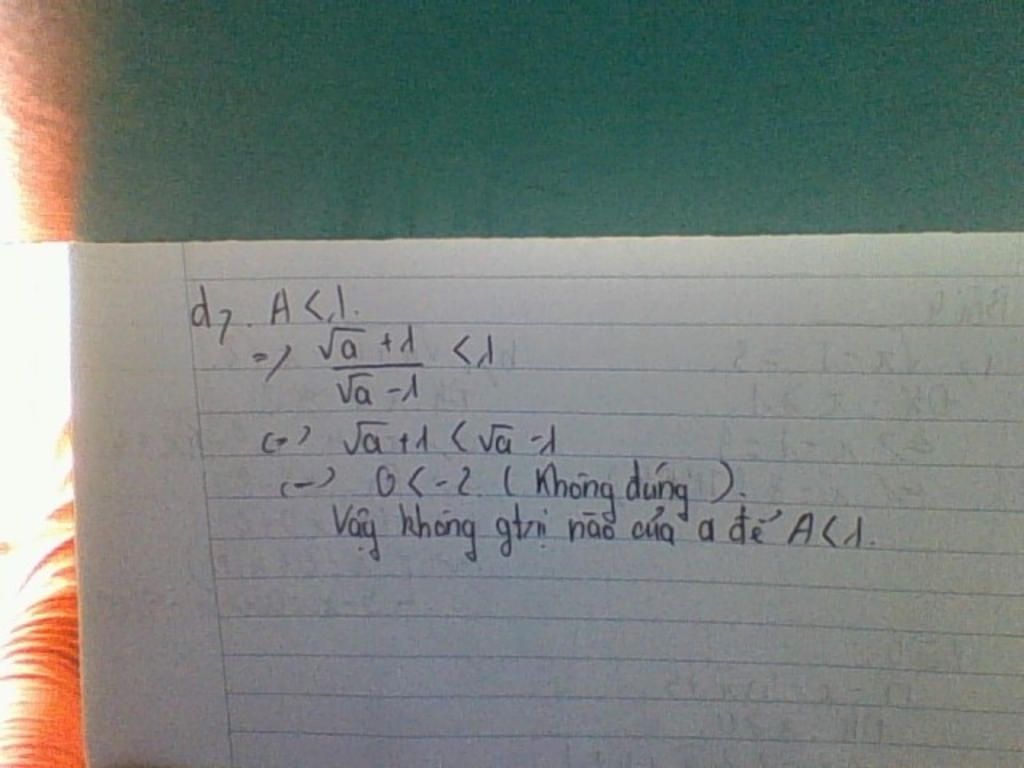 d, A < 1.
=> √a + 1 / √a - 1 < 1
<=> √a + 1 < √a - 1
<=> 0 < -2. (Không đúng).
Vậy không gtrị nào của a để A < 1.